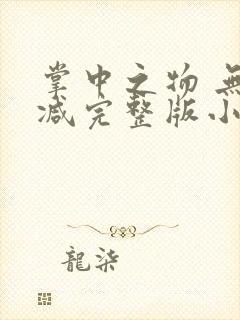 掌中之物 無
减完整版小
龍柒